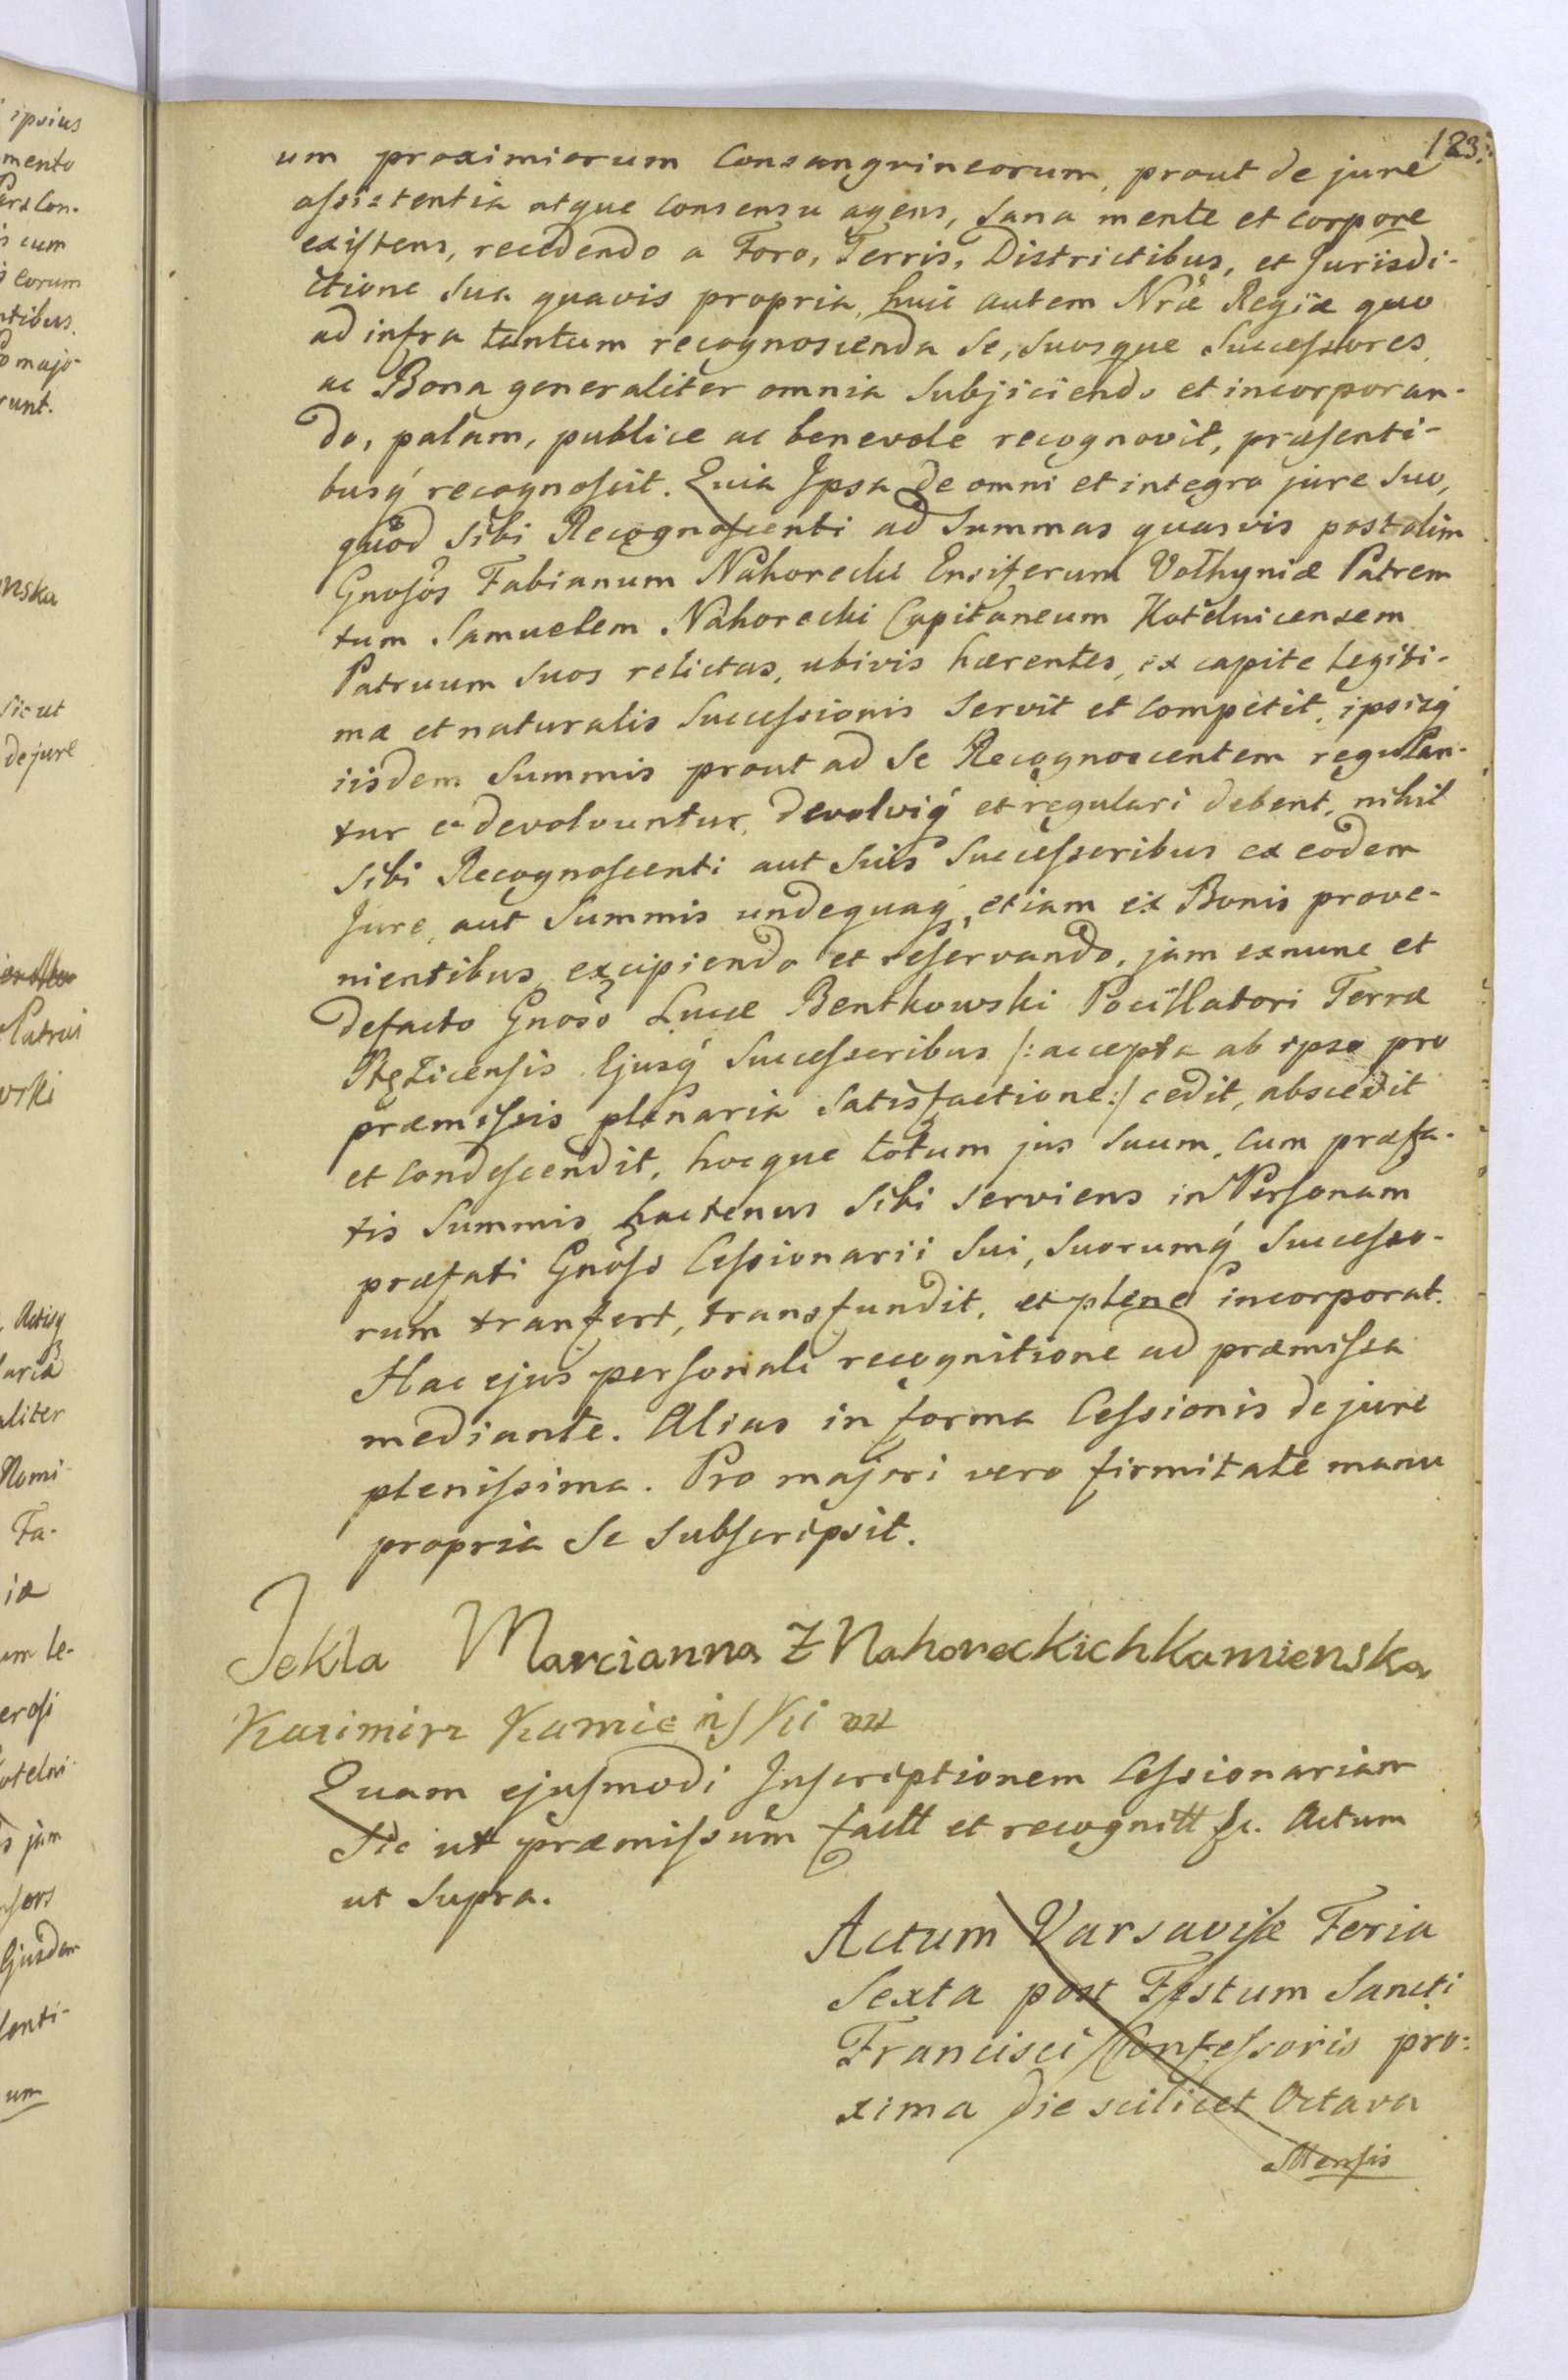 123.
um proximiorum Consangvineorum, prout de jure
assistentia atque Consensu agens, Sana mente et corpore
existens, recedendo a Foro, Terris, Districtibus, et Jurisdi-
ctione Sua quavis propria, huic autem Nrae Regiae quo
ad infra tantum recognoscenda Se, Suosque Successores,
ac Bona generaliter omnia Subjiciendo et incorporan-
do, palam, publice ac benevole recognovit, praesenti-
busq́ recognoscit. Quia Ipsa de omni et integro jure Suo,
quod Sibi Recognoscenti ad Summas quasvis post olim
Gnosos Fabianum Nahorecki Ensiferum Volhyniae Patrem
tum Samuelem Nahorecki Capitaneum Kotelnicensem
Patruum Suos relictas, ubivis haerentes, ex capite legiti-
mae et naturalis Successionis Servit et Competit, ipsisq́
iisdem Summis prout ad Se Recognoscentem regulan-
tur et devolvuntur, devolviq́ et regulari debent, nihil
Sibi Recognoscenti aut Suis Successoribus ex eodem
Jure, aut Summis undequaq́, etiam ex Bonis prove-
nientibus, excipiendo et reservando, jam exnunc et
defacto Gnoso Lucae Benthowski Pocillatori Terrae
Ejusq́ Successoribus /: accepta ab ipso pro
praemissis plenaria Satisfactione :/ cedit, abscedit
et Condescendit, hocque totum jus Suum, Cum praefa-
tis Summis hactenus Sibi Serviens in Personam
praefati Gnoso Cessionarii Sui, Suorumq́ Successo-
rum tranfert, transfundit, et plene incorporat.
Hac ejus personali recognitione ad praemissa
mediante. Alias in forma Cessionis de jure
plenissima. Pro majori vero firmitate manu
propria Se Subscripsit.
Tekla Marcianna Z Nahoreckich Kamienska
Kazimirz Kamieński
Quam ejusmodi Inscriptionem Cessionariam
Sic ut praemissum factt et recognitt &c. Actum
ut Supra.
Actum Varsaviae Feria
Sexta post Festum Sancti
Francisci Confessoris pro:
xima die scilicet Octava
Mensis